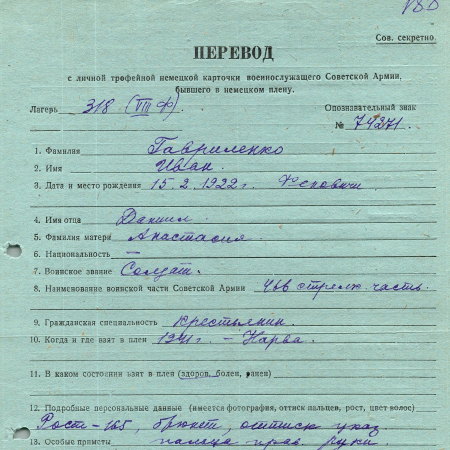 180
Сов. секретно.
ПЕРЕВОД
с личной трофейной немецкой карточки военнослужащего Советской Армии,
бывшего в немецком плену.
Лагерь 318 (VIII Ф) Опознавательный знак
№ 74271.
1. Фамилия Гавриленко
2. Имя Иван.
3. Дата и место рождения 15.2.1922г.
4. Имя отца Даниил.
5. Фамилия матери Анастасия
6. Национальность —
7. Воинское звание Солдат.
8. Наименование воинской части Советской Армии 466 стрелк. часть.
9. Гражданская специальность крестьянин.
10. Когда и где взят в плен 1941г. – Нарва.
11. В каком состоянии взят в плен (здоров, болен, ранен)
12. Подробные персональные данные (имеется фотография, оттиск пальцев, рост, цвет волос)
Рост–165, брюнет, оттиск указ
13. Особые приметы пальца прав. руки.